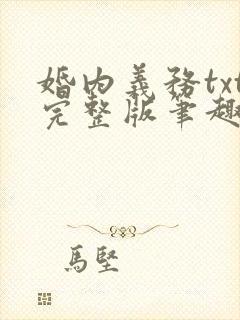 婚内義務txt
完整版筆趣
馬堅